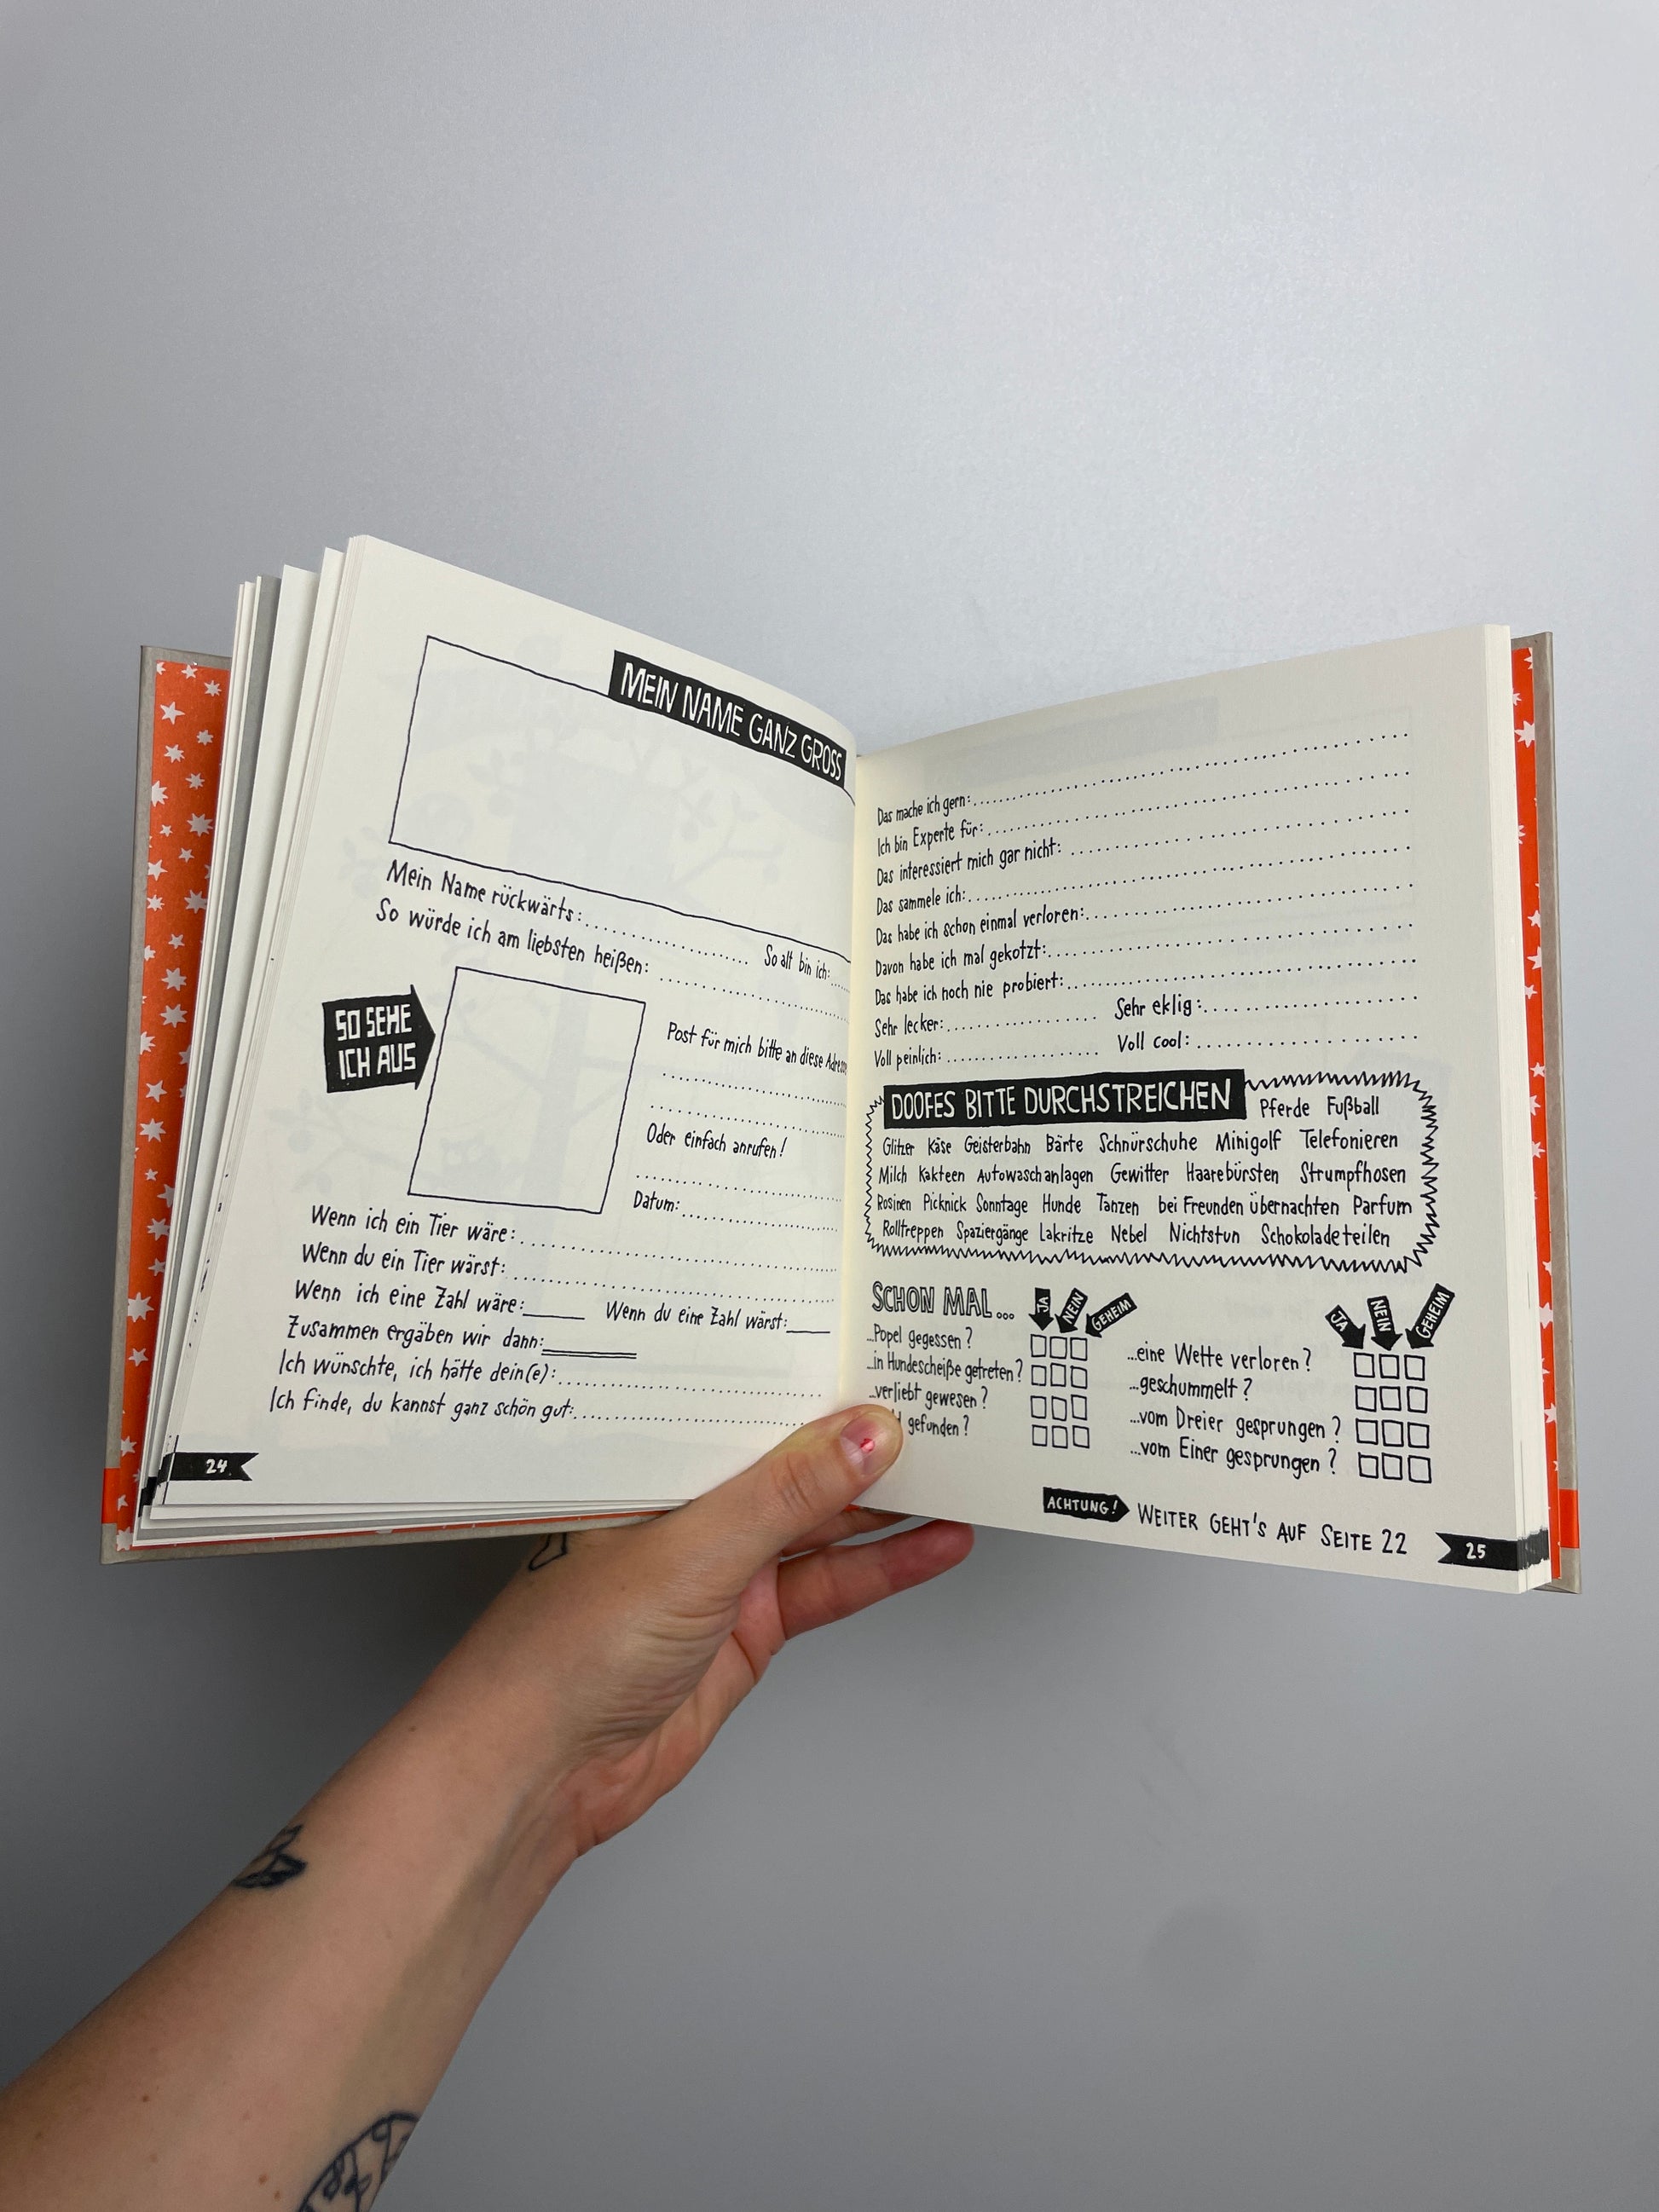 MEIN NAME GANZ GROSS
Mein Name rückwärts:
So alt bin ich:
So würde ich am liebsten heißen:
SO SEHE
ICH AUS
Post für mich bitte an diese
Oder einfach anrufen!
Datum:
Wenn ich ein Tier wäre:
Wenn du ein Tier wärst:
Wenn ich eine Zahl wäre: Wenn du eine Zahl wärst:
Zusammen ergäben wir dann:
Ich wünschte, ich hätte dein(e):
Ich finde, du kannst ganz schön gut:
24
Das mache ich gern:
Ich bin Experte für:
Das interessiert mich gar nicht:
Das sammele ich:
Das habe ich schon einmal verloren:
Davon habe ich mal gekotzt:
Das habe ich noch nie probiert:
Sehr lecker: Sehr eklig:
Voll peinlich: Voll cool:
DOOFES BITTE DURCHSTREICHEN Pferde Fußball
Glitzer Käse Geisterbahn Bärte Schnürschuhe Minigolf Telefonieren
Milch Kakteen Autowaschanlagen Gewitter Haarebürsten Strumpfhosen
Rosinen Picknick Sonntage Hunde Tanzen bei Freunden übernachten Parfum
Rolltreppen Spaziergänge Lakritze Nebel Nichtstun Schokoladeteilen
SCHON MAL... JA NEIN GEHEIM
...Popel gegessen?
...in Hundescheiße getreten?
...verliebt gewesen?
gefunden?
JA NEIN GEHEIM
...eine Wette verloren?
...geschummelt?
...vom Dreier gesprungen?
...vom Einer gesprungen?
ACHTUNG! WEITER GEHT'S AUF SEITE 22
25